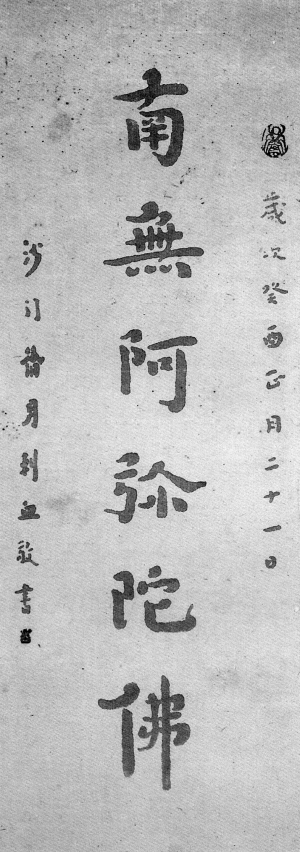 歲次癸酉正月二十一日
南無阿弥陀佛
沙門勝月刺血敬書